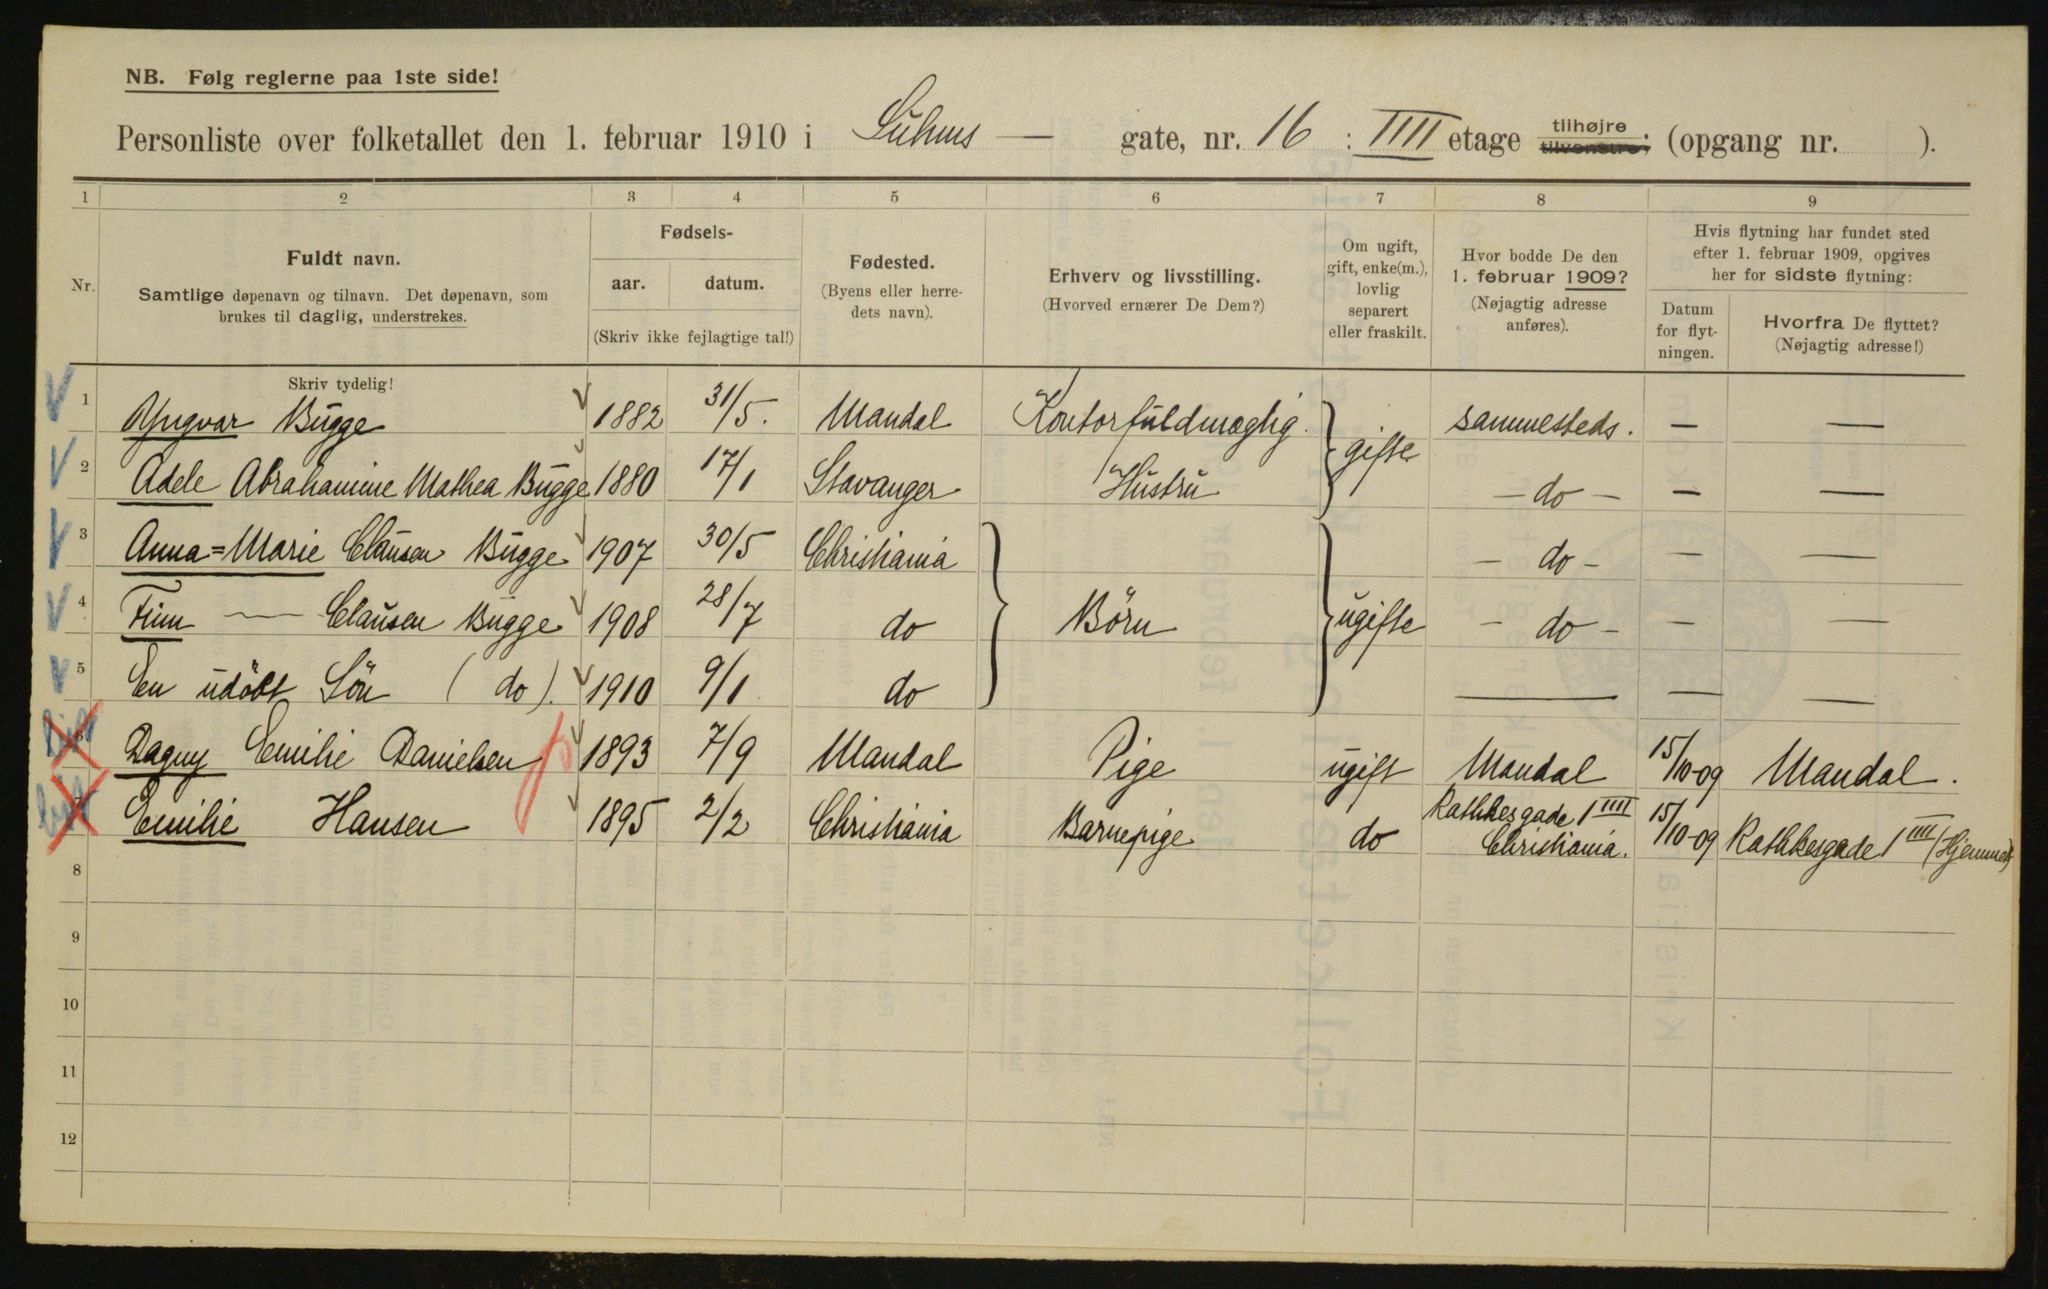 NB. Følg reglerne paa 1ste side!
Personliste over folketallet den 1. februar 1910 i Suhms — gate, nr. 16 : IIII etage tilhøjre tilvenstre; (opgang nr. ).
1 2 3 4 5 6 7 8 9
Nr.
Fuldt navn.
Samtlige døpenavn og tilnavn. Det døpenavn, som
brukes til daglig, understrekes.
Skriv tydelig!
Fødsels-
aar. datum.
(Skriv ikke fejlagtige tal!)
Fødested.
(Byens eller herre-
dets navn).
Erhverv og livsstilling.
(Hvorved ernærer De Dem?)
Om ugift,
gift, enke(m.),
lovlig
separert
eller fraskilt.
Hvor bodde De den
1. februar 1909?
(Nøjagtig adresse
anføres).
Hvis flytning har fundet sted
efter 1. februar 1909, opgives
her for sidste flytning:
Datum
for flyt-
ningen.
Hvorfra De flyttet?
(Nøjagtig adresse!)
1 Yngvar Bugge 1882 31/5. Mandal Kontorfuldmægtig. gifte sammesteds. — —
2 Adele Abrahamine Mathea Bugge 1880 17/1 Stavanger Hustru — do — — —
3 Anna=Marie Clausen Bugge 1907 30/5 Christiania — do — — —
4 Finn — Clausen Bugge 1908 28/7 do Börn ugifte — do — — —
5 En udöbt Sön (do). 1910 9/1 do — — —
6 Dagny Emilie Danielsen 1893 7/9 Mandal Pige ugift Mandal 15/10-09 Mandal.
7 Emilie Hansen 1895 2/2 Christiania Barnepige do Rathkesgade 1 IIII Christiania. 15/10-09 Rathkesgade 1 IIII (Hjemmet)
8
9
10
11
12